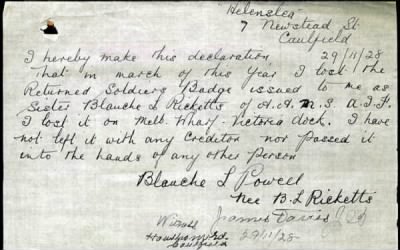 "Helenslea"
7 Newstead St
Caulfield
I hereby make this declaration 29/11/28
That in march of this year I lost the
Returned Soldiers Badge issued to me as
Sister Blanche L Ricketts of A.A.M.S A.I.F.
I lost it on Melb. Wharf. Victoria dock. I have
not left it with any Creditor nor passed it
into the hands of any other Person
Blanche L Powell
nee B.L Ricketts
Witness James Davis
Hawthorn Rd 29/11/28
Caulfield